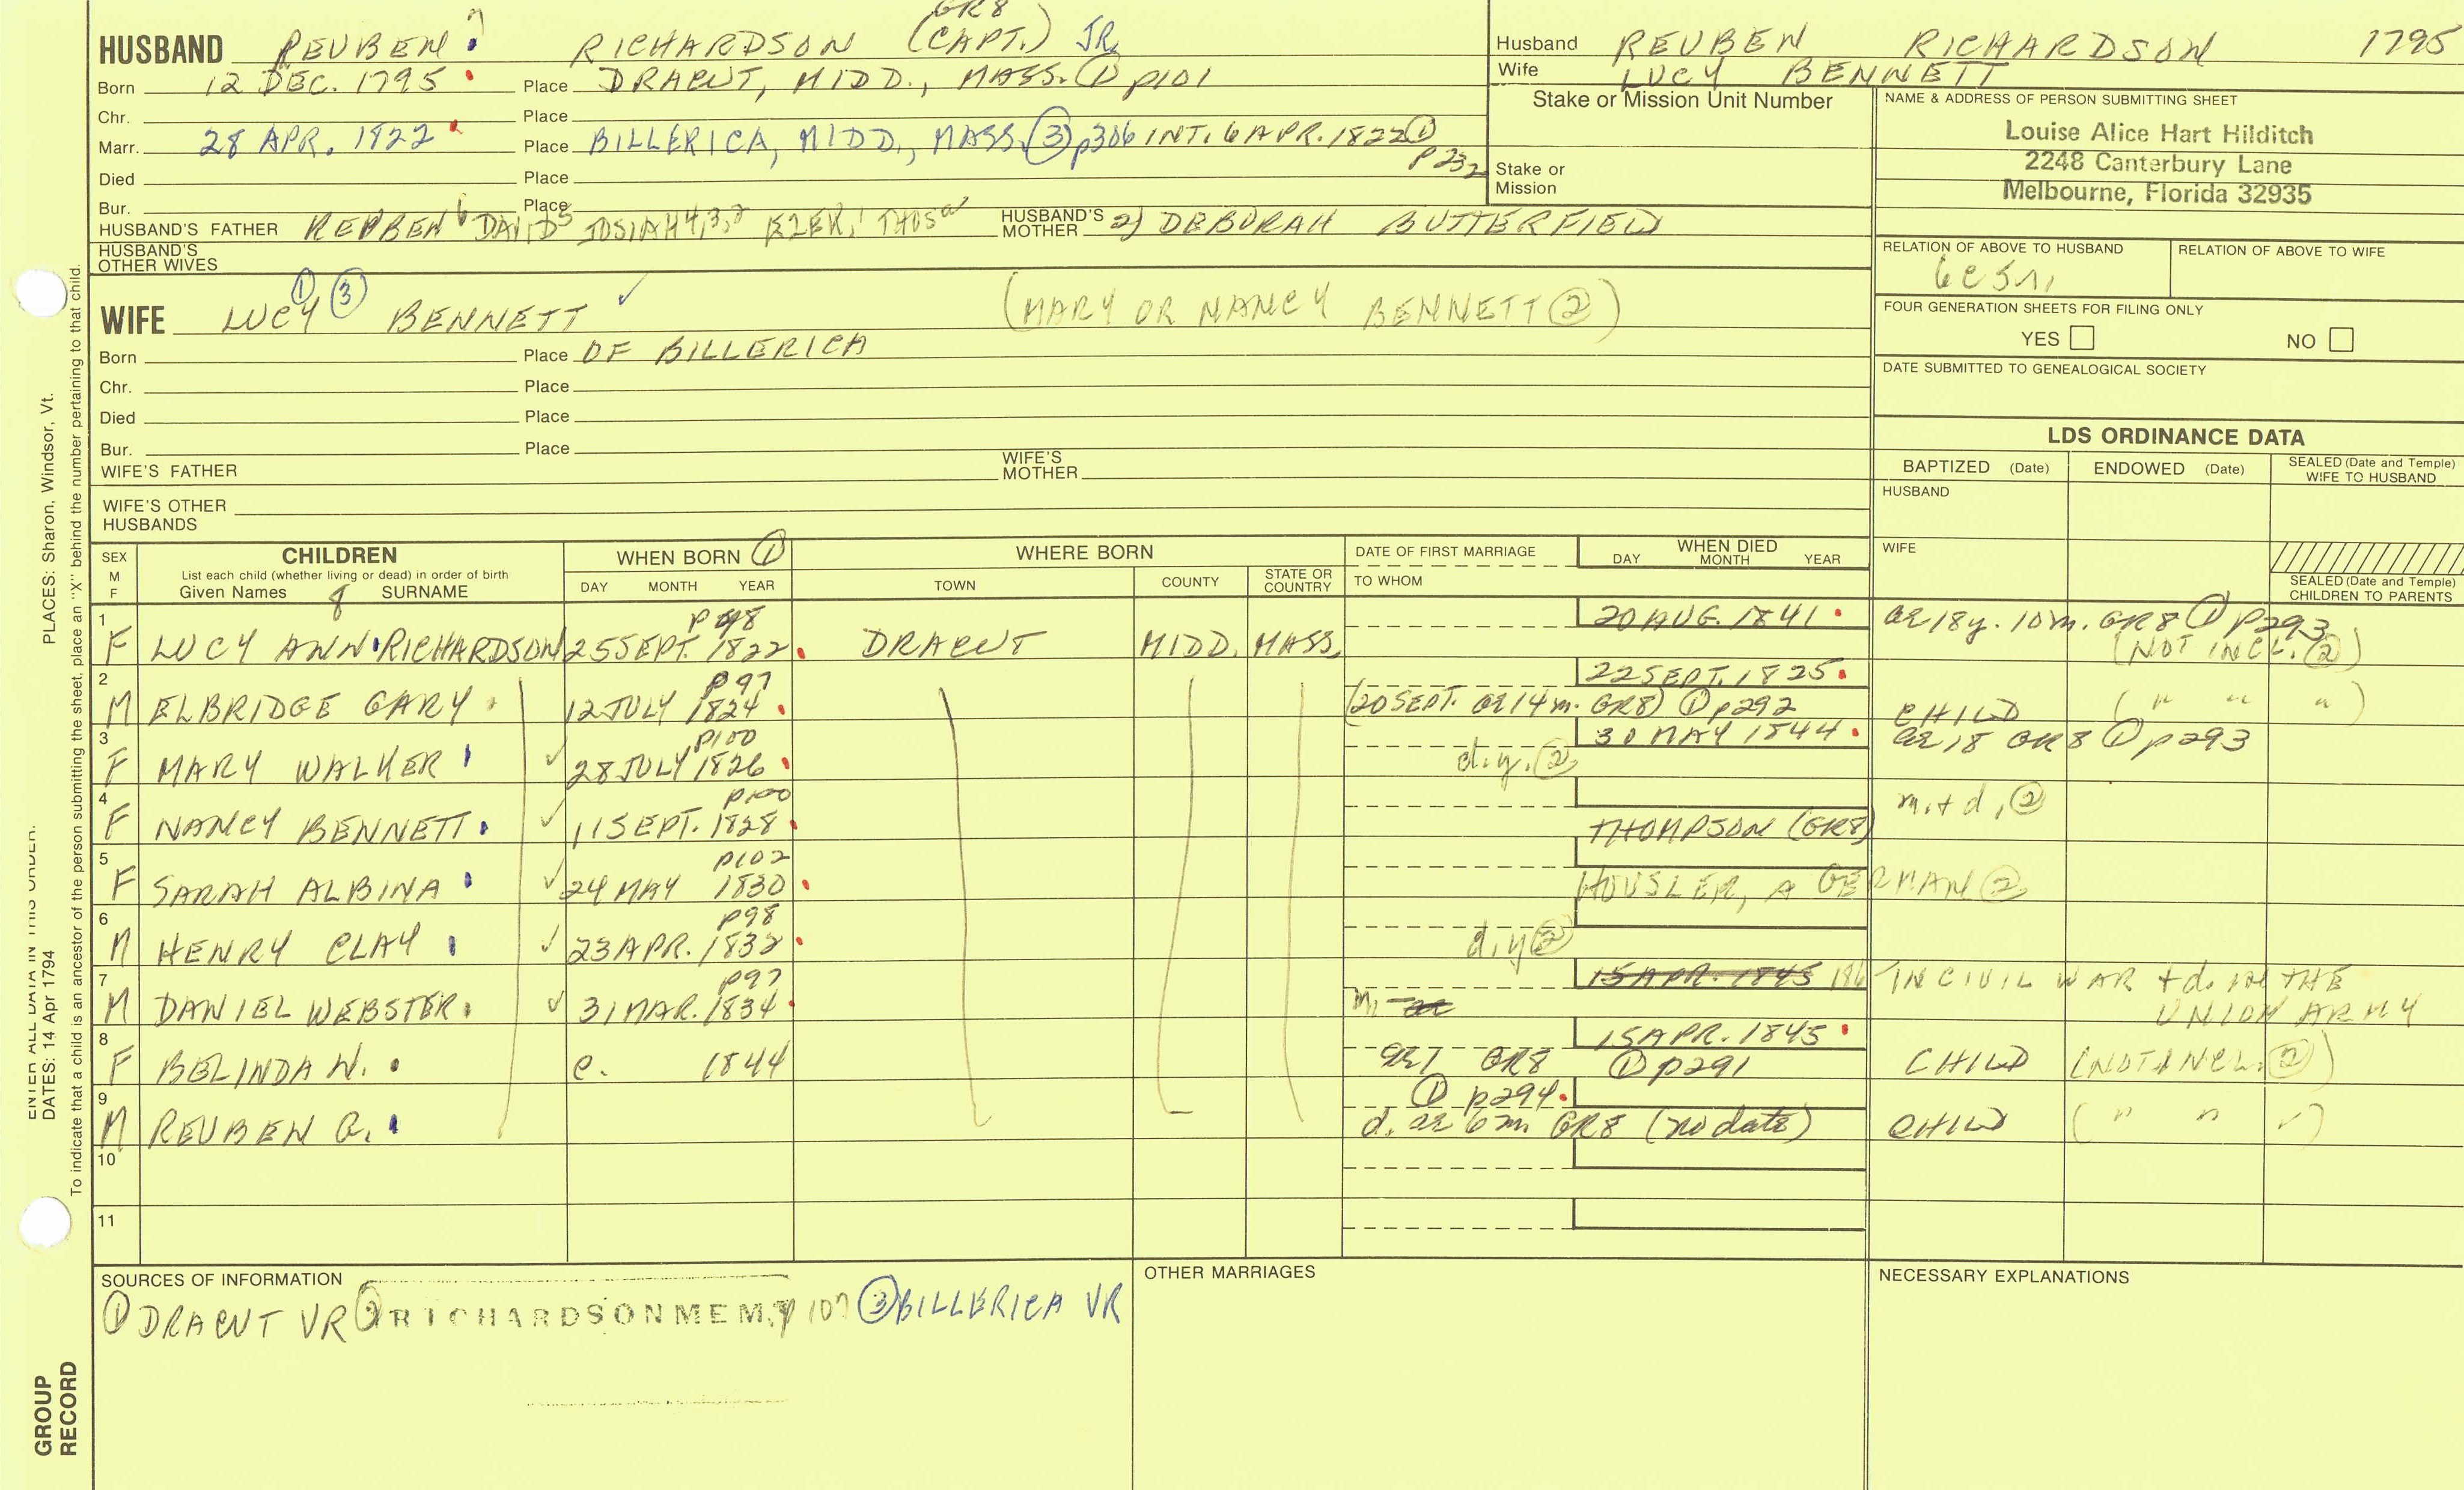 GR8
HUSBAND REUBEN 7 RICHARDSON (CAPT.) JR.
Born 12 DEC. 1795 Place DRACUT, MIDD., MASS. ① p101
Chr. Place
Marr. 28 APR. 1822 Place BILLERICA, MIDD., MASS. ③ p306 INT. 6 APR. 1822 ① p232
Died Place
Bur. Place
HUSBAND'S FATHER REUBEN 6 DAVID 5 JOSIAH 4,3,2 EZEK. 1 THOS a HUSBAND'S MOTHER 2) DEBORAH BUTTERFIELD
HUSBAND'S OTHER WIVES
WIFE LUCY ① ③ BENNETT ✓ (MARY OR NANCY BENNETT ②)
Born Place OF BILLERICA
Chr. Place
Died Place
Bur. Place
WIFE'S FATHER WIFE'S MOTHER
WIFE'S OTHER HUSBANDS
Husband REUBEN RICHARDSON 1795
Wife LUCY BENNETT
Stake or Mission Unit Number
Stake or Mission
NAME & ADDRESS OF PERSON SUBMITTING SHEET
Louise Alice Hart Hilditch
2248 Canterbury Lane
Melbourne, Florida 32935
RELATION OF ABOVE TO HUSBAND RELATION OF ABOVE TO WIFE
6C5r,
FOUR GENERATION SHEETS FOR FILING ONLY
YES NO
DATE SUBMITTED TO GENEALOGICAL SOCIETY
LDS ORDINANCE DATA
BAPTIZED (Date) ENDOWED (Date) SEALED (Date and Temple) WIFE TO HUSBAND
HUSBAND
WIFE
SEALED (Date and Temple) CHILDREN TO PARENTS
SEX M F
CHILDREN
List each child (whether living or dead) in order of birth
Given Names 8 SURNAME
WHEN BORN ①
DAY MONTH YEAR
WHERE BORN
TOWN COUNTY STATE OR COUNTRY
DATE OF FIRST MARRIAGE
TO WHOM
WHEN DIED
DAY MONTH YEAR
1 p98 20 AUG. 1841 ae 18y. 10m. GR8 ① p293
F LUCY ANN RICHARDSON 25 SEPT. 1822 DRACUT MIDD. MASS. (NOT INCL. ②)
2 p97 22 SEPT. 1825
M ELBRIDGE GARY 12 JULY 1824 (20 SEPT. ae 14 m. GR8) ① p292 CHILD ( " " " )
3 p100 30 MAY 1844 ae 18 GR8 ① p293
F MARY WALKER ✓ 28 JULY 1826 d.y. ②
4 p100 m. + d. ②
F NANCY BENNETT ✓ 11 SEPT. 1828 THOMPSON (GR8)
5 p102
F SARAH ALBINA ✓ 24 MAY 1830 HOUSLER, A GERMAN ②
6 p98
M HENRY CLAY ✓ 23 APR. 1832 d.y. ②
7 p97 15 APR. 1845 186 IN CIVIL WAR + d. in THE
M DANIEL WEBSTER ✓ 31 MAR. 1834 m. UNION ARMY
8 15 APR. 1845
F BELINDA W. c. 1844 ae 1 GR8 ① p291 CHILD (NOT INCL. ②)
9 ① p294
M REUBEN G. d. ae 6 m GR8 (no date) CHILD ( " " " )
10
11
SOURCES OF INFORMATION
① DRACUT VR ② RICHARDSON MEM. p 107 ③ BILLERICA VR
OTHER MARRIAGES
NECESSARY EXPLANATIONS
ENTER ALL DATA IN THIS ORDER:
DATES: 14 Apr 1794 PLACES: Sharon, Windsor, Vt.
To indicate that a child is an ancestor of the person submitting the sheet, place an "X" behind the number pertaining to that child.
GROUP
RECORD